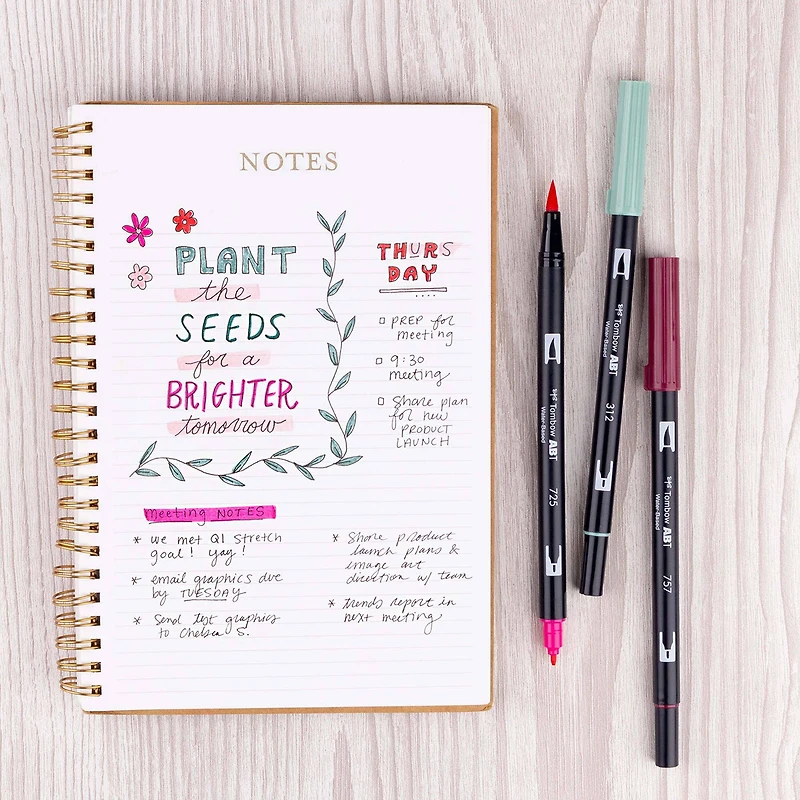 NOTES
PLANT
the
SEEDS
for a
BRIGHTER
tomorrow
THURS
DAY
PREP for
meeting
9:30
meeting
Share plan
for new
PRODUCT
LAUNCH
meeting NOTES
* we met Q1 stretch
goal! yay!
* email graphics due
by TUESDAY
* Send test graphics
to Chelsea S.
* Share product
launch plans &
image art
direction w/ team
* trends report in
next meeting
Tombow ABT
Water-Based
725
Tombow ABT
Water-Based
312
Tombow ABT
Water-Based
757